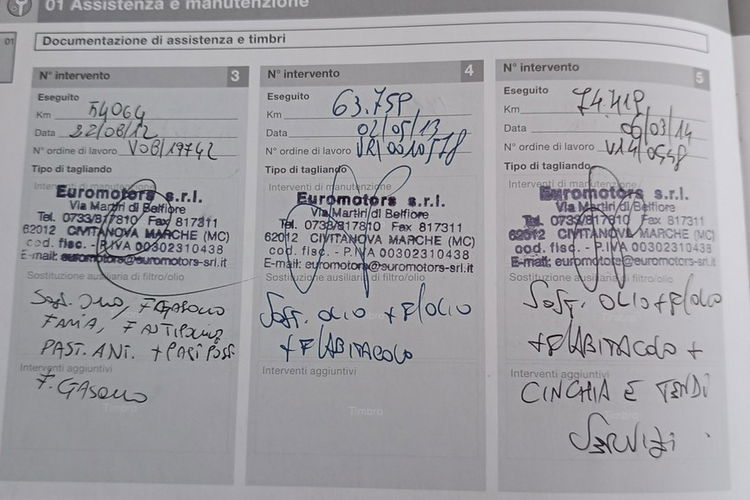 01 Assistenza e manutenzione
01
Documentazione di assistenza e timbri
N° intervento 3
Eseguito
Km 54064
Data 22/08/12
N° ordine di lavoro V08/19742
Tipo di tagliando
Interventi di manutenzione
Euromotors s.r.l.
Via Martiri di Belfiore
Tel. 0733/817810 Fax 817311
62012 CIVITANOVA MARCHE (MC)
cod. fisc. - P.IVA 00302310438
E-mail: euromotors@euromotors-srl.it
Sostituzione ausiliaria di filtro/olio
PAST. ANT. + PAST POST
Interventi aggiuntivi
F. GASOLIO
Timbro
N° intervento 4
Eseguito
Km 63.758
Data 02/05/13
N° ordine di lavoro
Tipo di tagliando
Interventi di manutenzione
Euromotors s.r.l.
Via Martiri di Belfiore
Tel. 0733/817810 Fax 817311
62012 CIVITANOVA MARCHE (MC)
cod. fisc. - P.IVA 00302310438
E-mail: euromotors@euromotors-srl.it
Sostituzione ausiliaria di filtro/olio
SOST. OLIO + F/OLIO
+ F/ABITACOLO
Interventi aggiuntivi
Timbro
N° intervento 5
Eseguito
Km 74.419
Data 06/03/14
N° ordine di lavoro V14/0548
Tipo di tagliando
Interventi di manutenzione
Euromotors s.r.l.
Via Martiri di Belfiore
Tel. 0733/817810 Fax 817311
62012 CIVITANOVA MARCHE (MC)
cod. fisc. - P.IVA 00302310438
E-mail: euromotors@euromotors-srl.it
Sostituzione ausiliaria di filtro/olio
SOST. OLIO + F/OLIO
+ F/ABITACOLO +
Interventi aggiuntivi
CINGHIA E TENDI
SERVIZI